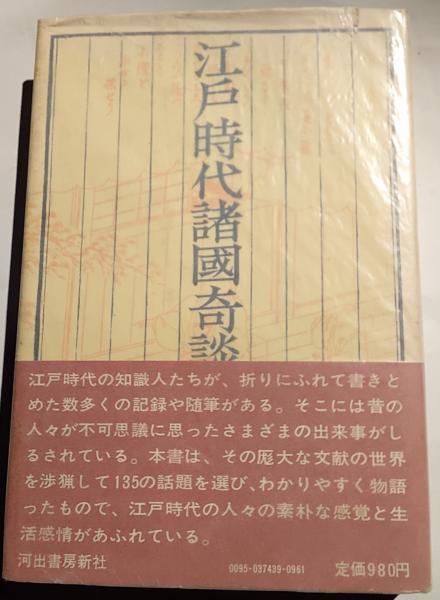 江戸時代諸國奇談
江戸時代の知識人たちが、折りにふれて書きと
めた数多くの記録や随筆がある。そこには昔の
人々が不可思議に思ったさまざまの出来事がし
るされている。本書は、その厖大な文献の世界
を渉猟して135の話題を選び、わかりやすく物語
ったもので、江戸時代の人々の素朴な感覚と生
活感情があふれている。
河出書房新社
0095-037439-0961
定価980円